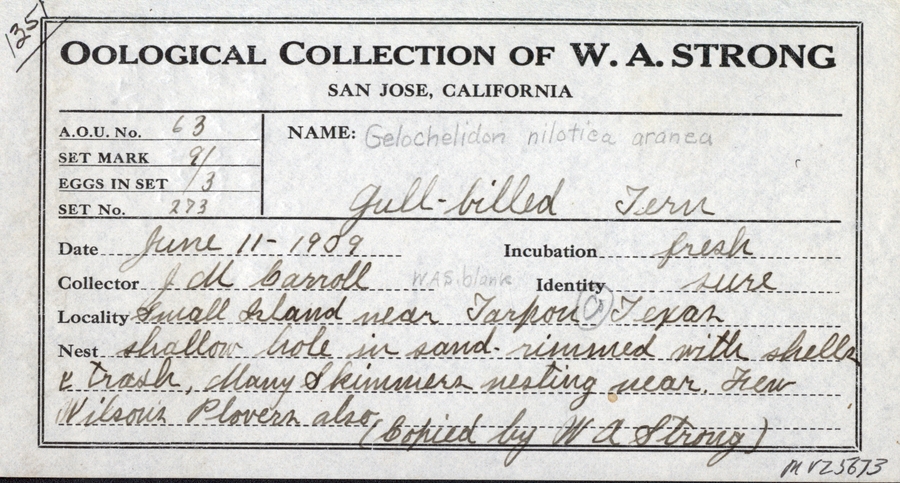 135
OOLOGICAL COLLECTION OF W. A. STRONG
SAN JOSE, CALIFORNIA
A.O.U. No. 63
SET MARK 91/3
EGGS IN SET
SET No. 273
NAME: Gelochelidon nilotica aranea
Gull-billed Tern
Date June 11-1909 Incubation fresh
Collector J M Carroll WAS. blank Identity sure
Locality Small Island near Tarpon Texas
Nest shallow hole in sand-rimmed with shells
& trash. Many Skimmers nesting near. Few
Wilson's Plovers also
(Copied by W A Strong)
MVZ 5673